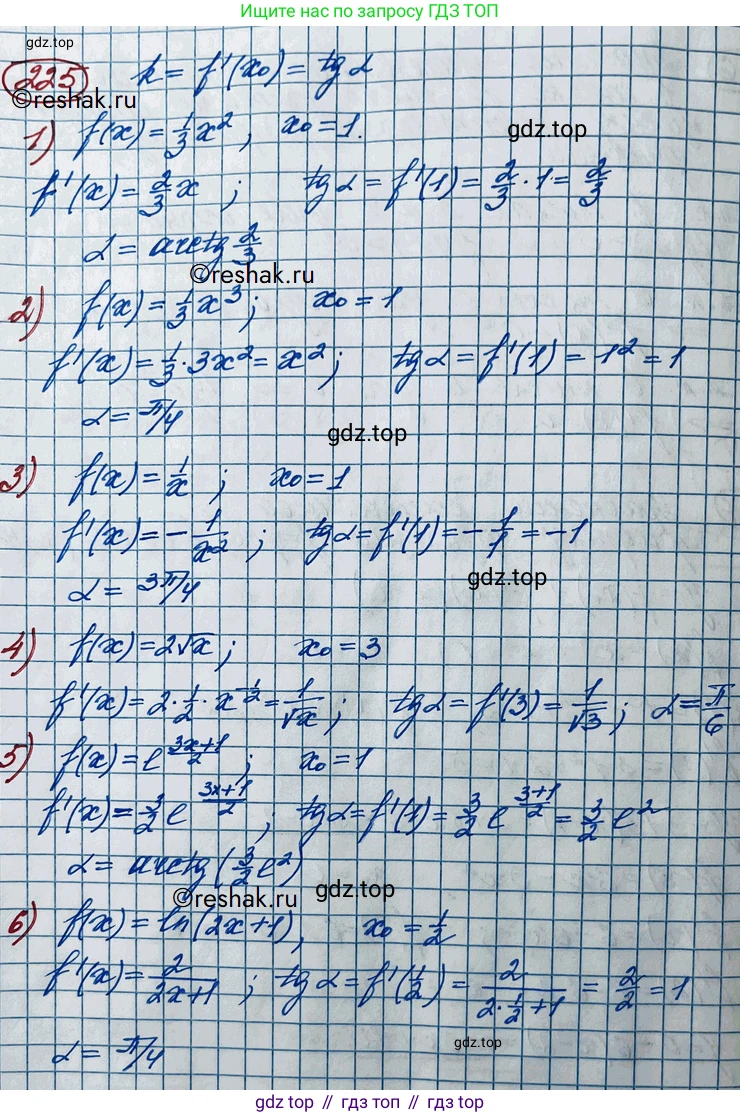 Ищите нас по запросу ГДЗ ТОП
gdz.top
225 k = f'(x₀) = tg α
©reshak.ru
1) f(x) = 1/3 x², x₀ = 1.
gdz.top
f'(x) = 2/3 x ; tg α = f'(1) = 2/3 · 1 = 2/3
α = arctg 2/3
©reshak.ru
2) f(x) = 1/3 x³ ; x₀ = 1
f'(x) = 1/3 · 3x² = x² ; tg α = f'(1) = 1² = 1
α = π/4
gdz.top
3) f(x) = 1/x ; x₀ = 1
f'(x) = - 1/x² ; tg α = f'(1) = - 1/1 = -1
gdz.top
α = 3π/4
4) f(x) = 2√x ; x₀ = 3
f'(x) = 2 · 1/2 · x^(-1/2) = 1/√x ; tg α = f'(3) = 1/√3 ; α = π/6
5) f(x) = e^((3x+1)/2) ; x₀ = 1
f'(x) = 3/2 e^((3x+1)/2) ; tg α = f'(1) = 3/2 e^((3+1)/2) = 3/2 e²
α = arctg (3/2 e²)
©reshak.ru
gdz.top
6) f(x) = ln(2x+1), x₀ = 1/2
f'(x) = 2/(2x+1) ; tg α = f'(1/2) = 2/(2·1/2+1) = 2/2 = 1
gdz.top
α = π/4
gdz top // гдз топ // gdz top